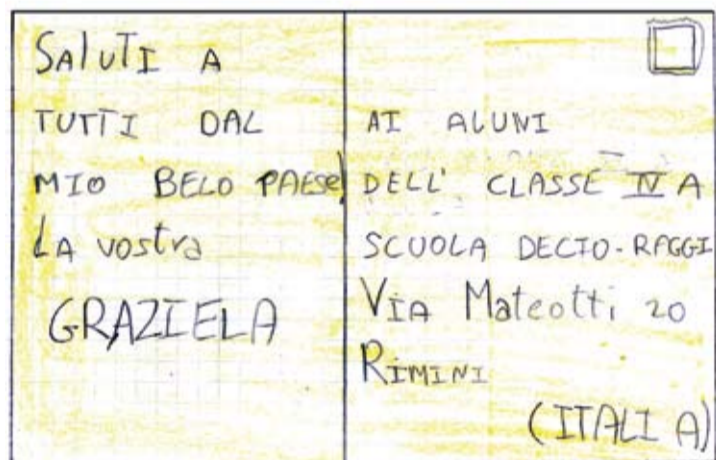 SAlUTI A
TUTTI DAL
MIO BELO PAESe!
LA vostra
GRAZIELA
AI ALUNI
DELL' CLASSE IV A
SCUOLA DECIO-RAGGI
VIA Mateotti 20
RIMINI
(ITALI A)